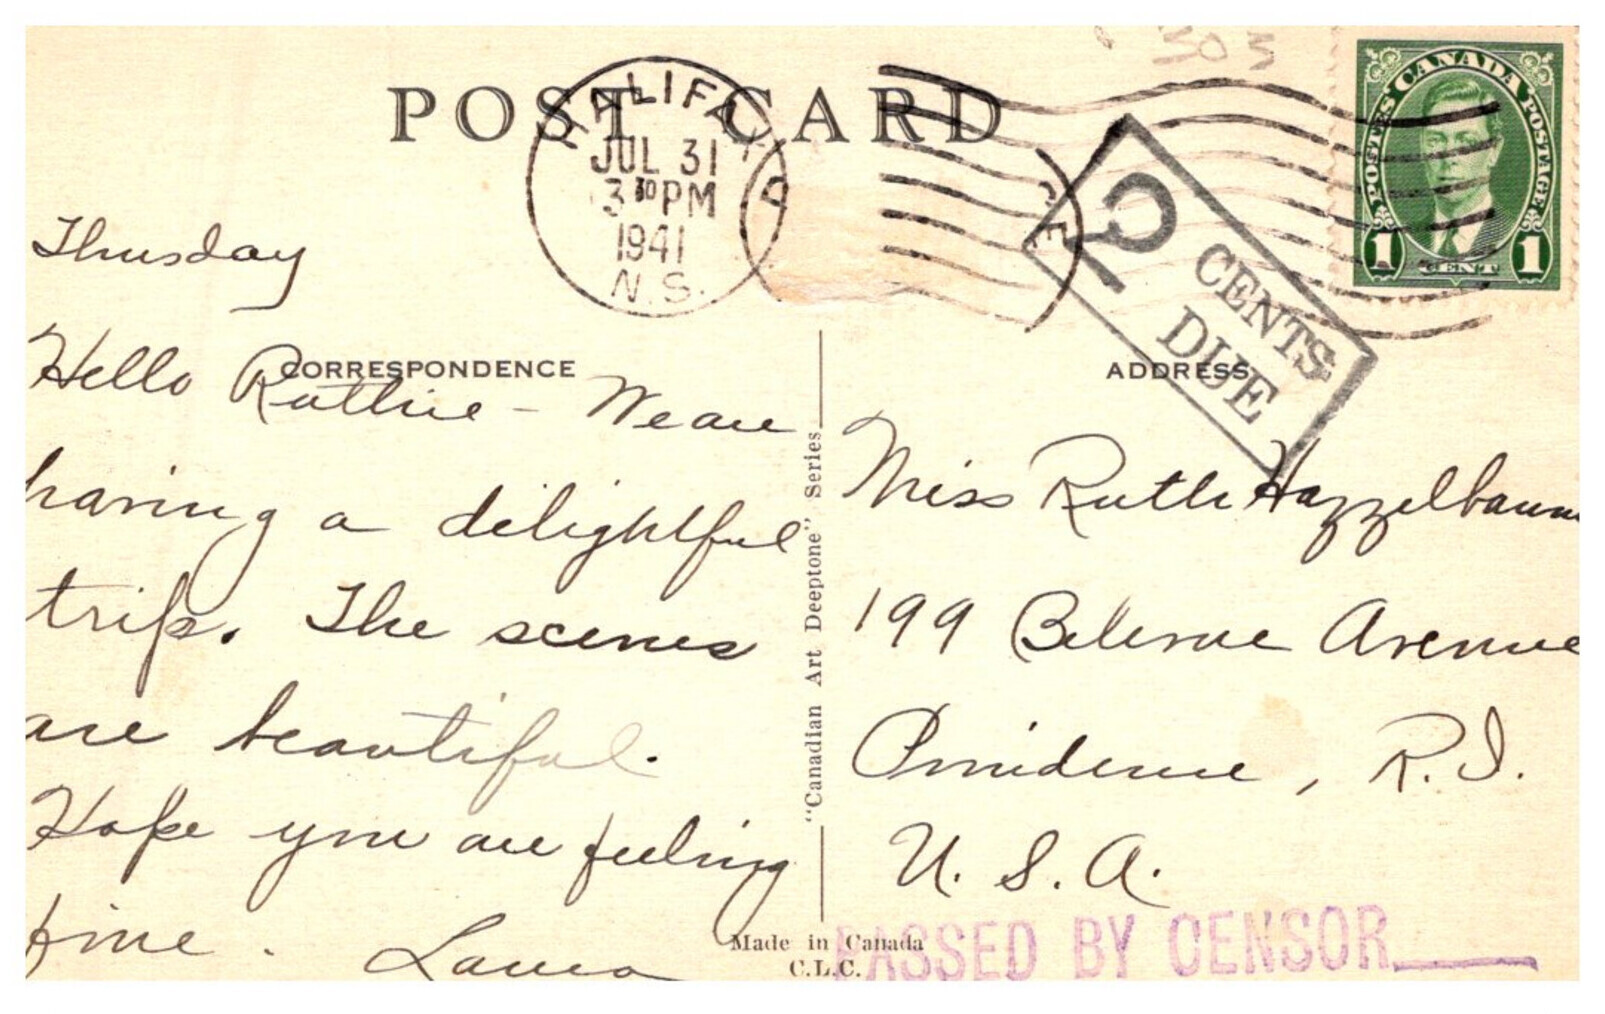 POST CARD
HALIFAX
JUL 31
3 30 PM
1941
N.S.
CANADA
POSTES POSTAGE
1 CENT 1
2 CENTS
DUE
CORRESPONDENCE
Thusday
Hello Ruthie - We are
having a delightful
trip. The scenes
are beautiful.
Hope you are feeling
fine.
"Canadian Art Deeptone" Series
Made in Canada
C.L.C.
ADDRESS
Miss Ruth Hazzelbaum
199 Bellevue Avenue
Providence, R.I.
U.S.A.
PASSED BY CENSOR